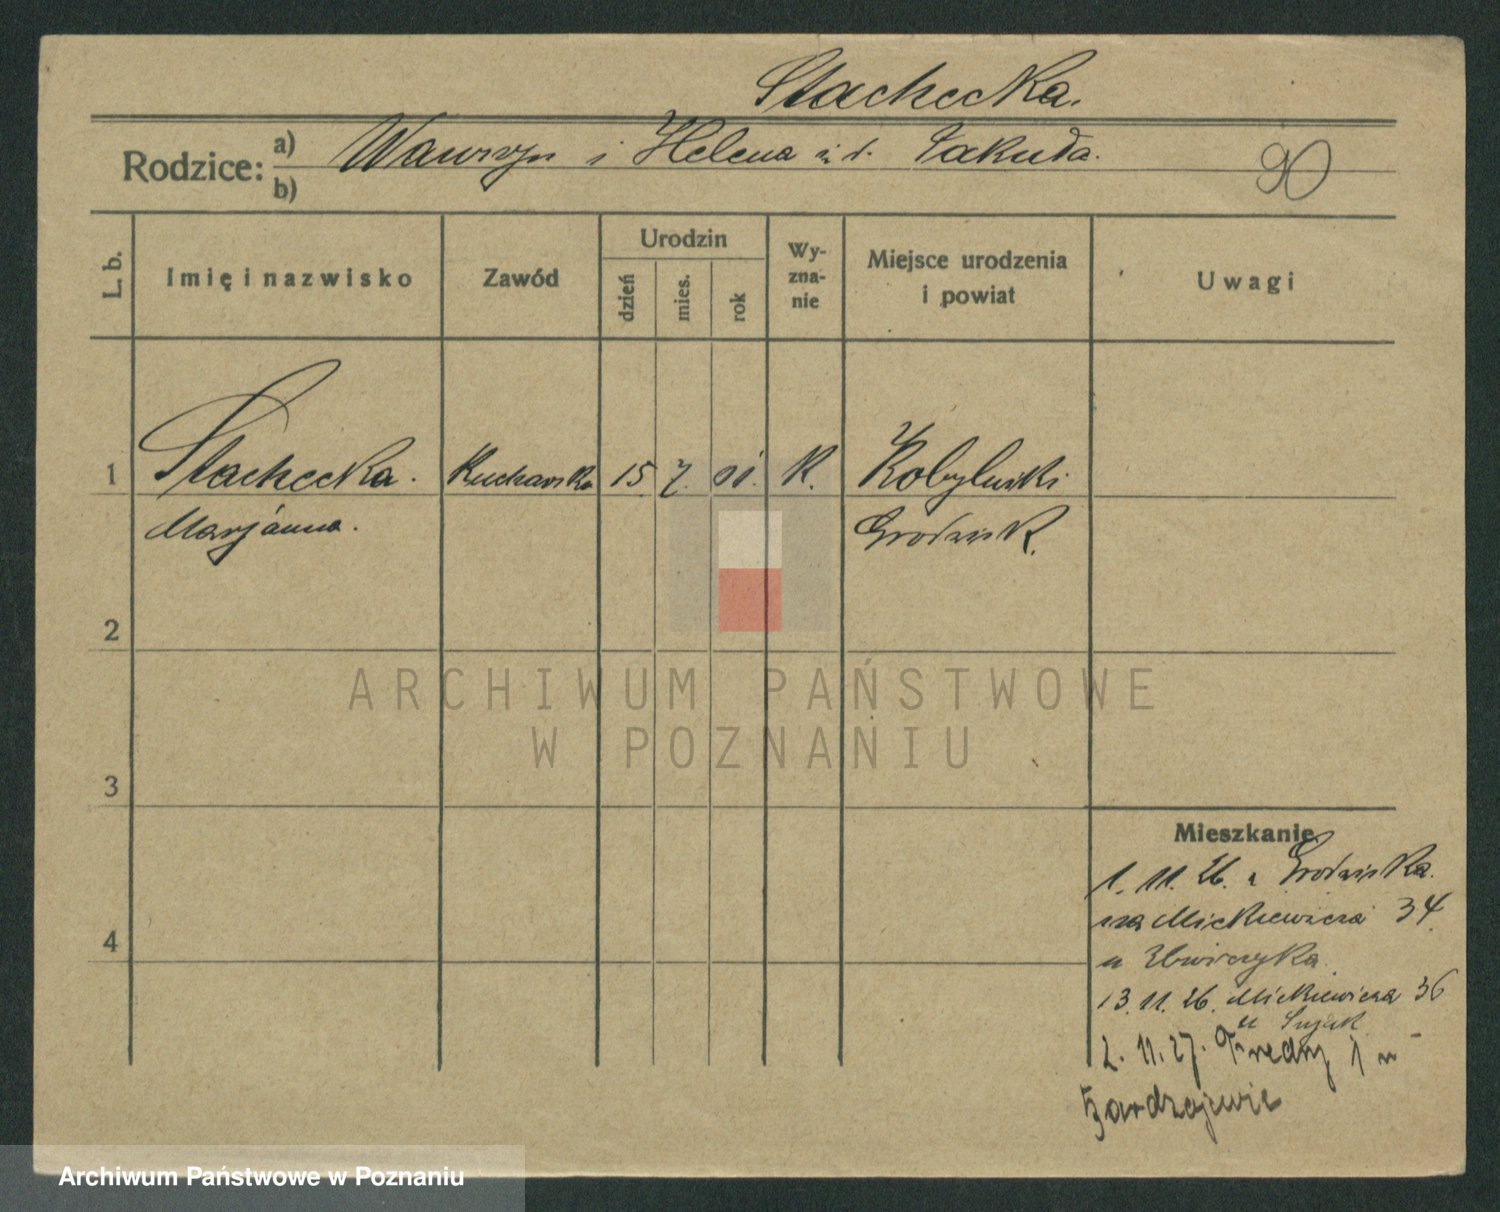 Stachecka.
Rodzice: a) Wawrzyn i Helena z d. Jakuda.
b)
90
L. b. Imię i nazwisko Zawód Urodzin dzień mies. rok Wy-zna-nie Miejsce urodzenia i powiat Uwagi
1 Stachecka. Kucharska 15. 7. 01. K. Kobylniki
Marjanna. Grodzisk.
2
ARCHIWUM PAŃSTWOWE
W POZNANIU
3
Mieszkanie
1. 11. 26. z Grodziska.
na Mickiewicza 34.
4
u
13. 11. 26. Mickiewicza 36
u
2. 11. 27. Fredry 1 u
Archiwum Państwowe w Poznaniu